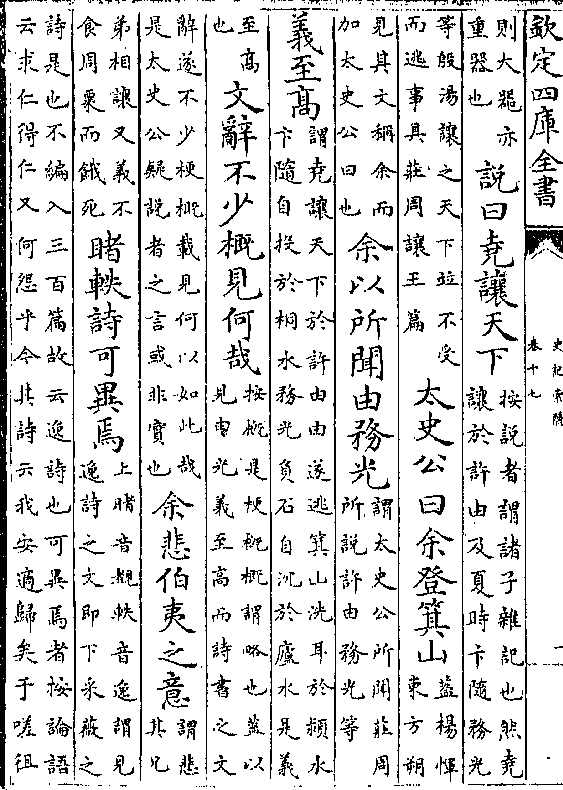 欽定四庫全書
史記索隱
卷十七
一
則大器亦
重器也
說曰堯讓天下
按說者謂諸子雜記也然堯
讓於許由及夏時卞隨務光
等殷湯讓之天下並不受
而逃事具莊周讓王篇
太史公曰余登箕山
蓋楊惲
東方朔
見其文稱余而
加太史公曰也
余以所聞由務光
謂太史公所聞莊周
所說許由務光等
義至高
謂堯讓天下於許由由遂逃箕山洗耳於潁水
卞隨自投於桐水務光負石自沉於廬水是義
至高
也
文辭不少概見何哉
按概是梗概概謂略也蓋以
見由光義至高而詩書之文
辭遂不少梗概載見何以如此哉
是太史公疑說者之言或非實也
余悲伯夷之意
謂悲
其兄
弟相讓又義不
食周粟而餓死
睹軼詩可異焉
上睹音覩軼音逸謂見
逸詩之文即下采薇之
詩是也不編入三百篇故云逸詩也可異焉者按論語
云求仁得仁又何怨乎今其詩云我安適歸矣于嗟徂